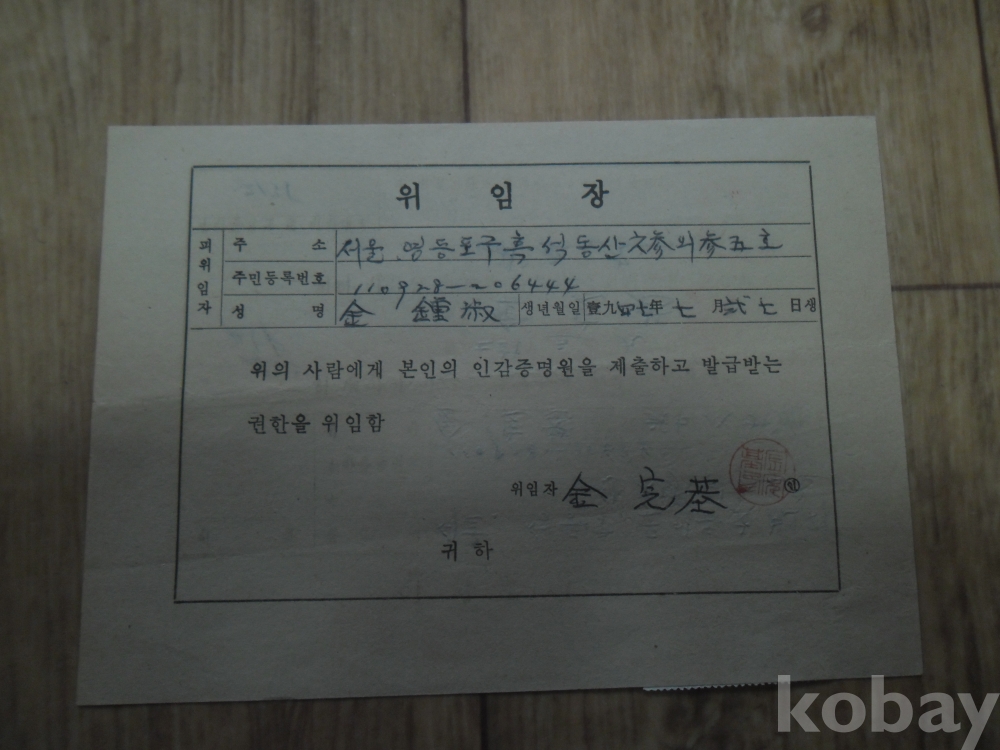 위 임 장
피위임자
주 소 서울 영등포구 흑석동산六参의参五호
주민등록번호 110928-206444
성 명 金 鍾淑 생년월일 壹九四七年 七 月 弐七 日생
위의 사람에게 본인의 인감증명원을 제출하고 발급받는
권한을 위임함
위임자 金 完基 ㊞
귀 하
kobay